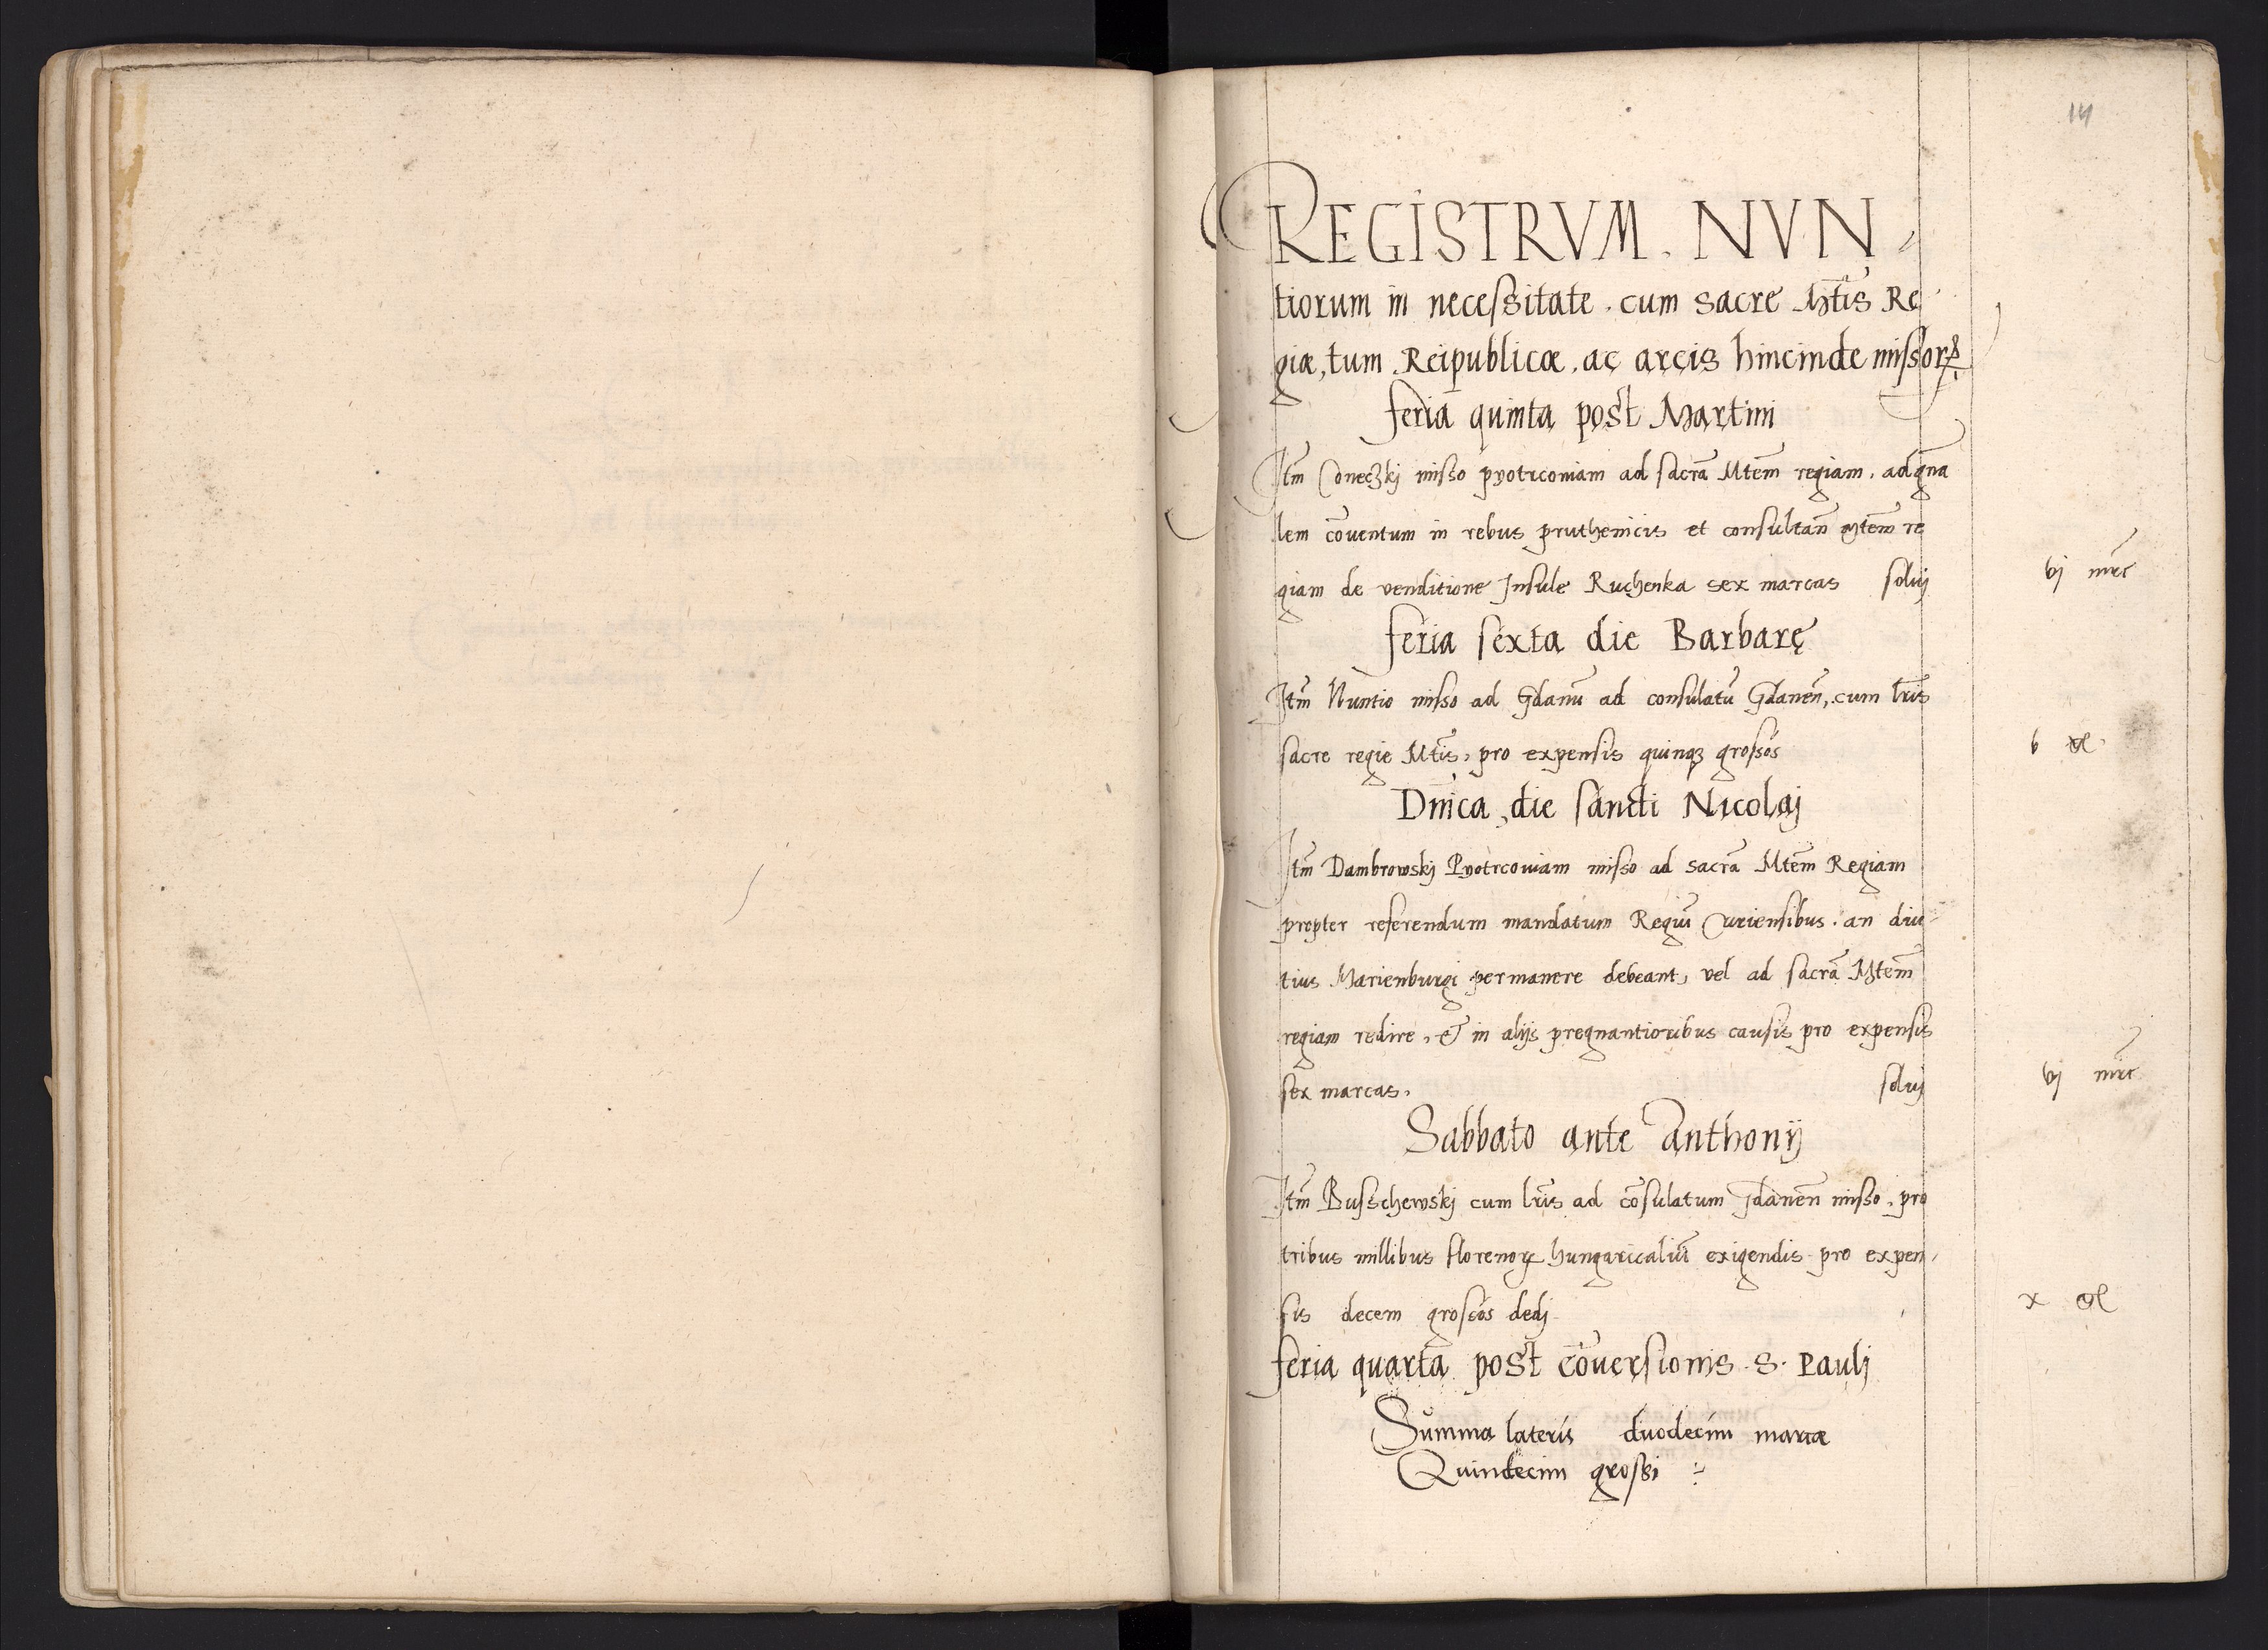 14
REGISTRVM. NVN-
tiorum in necessitate. cum sacre Mtis Re
giæ, tum Reipublicæ. ac arcis hincinde missorꝝ
feria quinta post Martini
Itm̄ Coneczkj misso pyotrcouiam ad sacrā Mtem̄ regiam. ad gn̄a
lem cōuentum in rebus pruthenicis et consultan̄ Mtem̄ re
giam de venditione Insule Ruchenka sex marcas soluj vj mrc̄
feria sexta die Barbarę
Itm̄ Nuntio misso ad Gdanū ad consulatū Gdanen̄, cum lrīs
sacre regie Mtis, pro expensis quinqꝫ grossos v
Dn̄ica, die sancti Nicolaj
Itm̄ Dambrowskj Pyotrcouiam misso ad sacrā Mtem̄ Regiam
propter referendum mandatum Regiū Curiensibus. an diu-
tius Marienburgi permanere debeant, vel ad sacrā Mtem̄
regiam redire, & in alijs pregnantioribus causis pro expensis
sex marcas. soluj vj mrc̄
Sabbato ante Anthonij
Itm̄ Busschewskj cum lrīs ad cōsulatum Gdanen̄ misso. pro
tribus millibus florenoꝝ hungaricaliū exigendis pro expen-
sis decem grossos dedj x
feria quarta post cōuersionis. S. Paulj
Summa lateris duodecim marcæ
Quindecim grossi